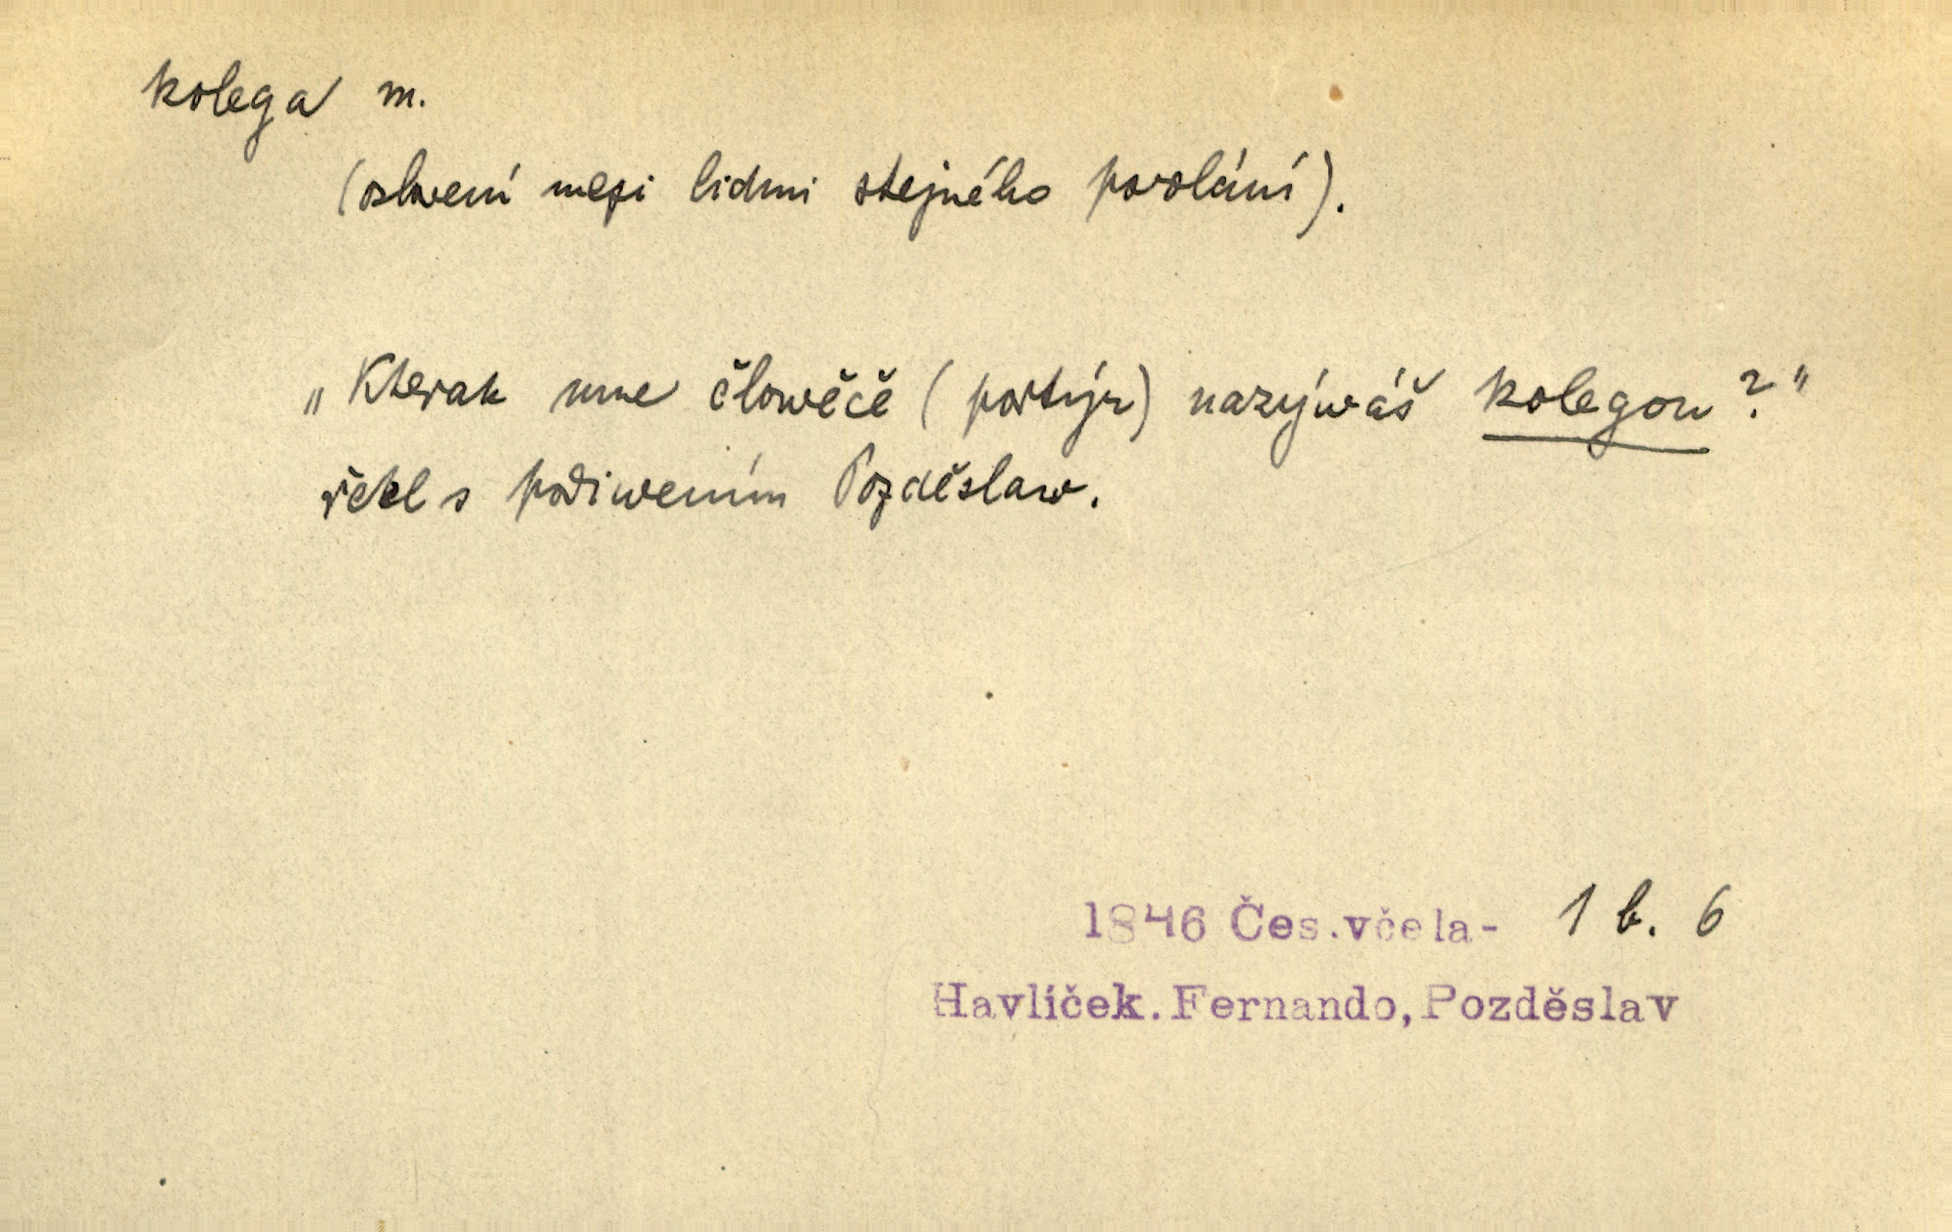 kolega m.
(oslovení mezi lidmi stejného povolání).
„Kterak mne člowěčě (portýr) nazýwáš kolegou?"
řekl s podiwením Pozděslaw.
1846 Čes.včela- 1 b. 6
Havlíček.Fernando,Pozděslav